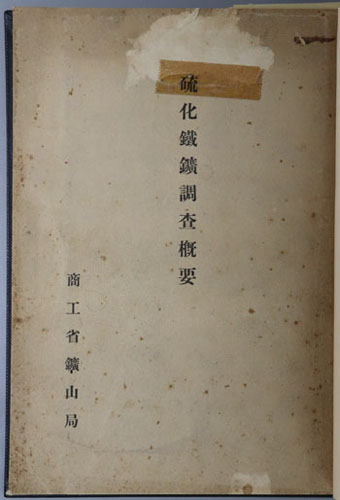 硫化鐵鑛調査概要
商工省鑛山局